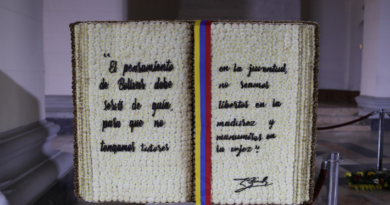 "El pensamiento
de Bolívar debe
servir de guía,
para que no
tengamos tutores
en la juventud,
no seamos
libertos en la
madurez y
manumitos en
la vejez".